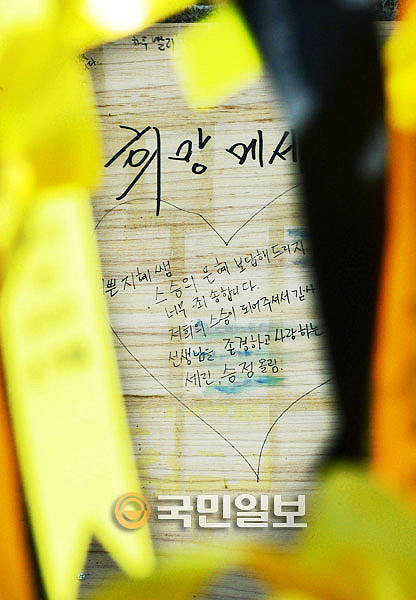 하루 빨리
희망 메세
쁜 지혜쌤
스승의 은혜 보답해 드리지
너무 죄송합니다.
저희의 스승이 되어주셔서 감사
선생님을 존경하고 사랑하는
세린, 승정 올림.
국민일보